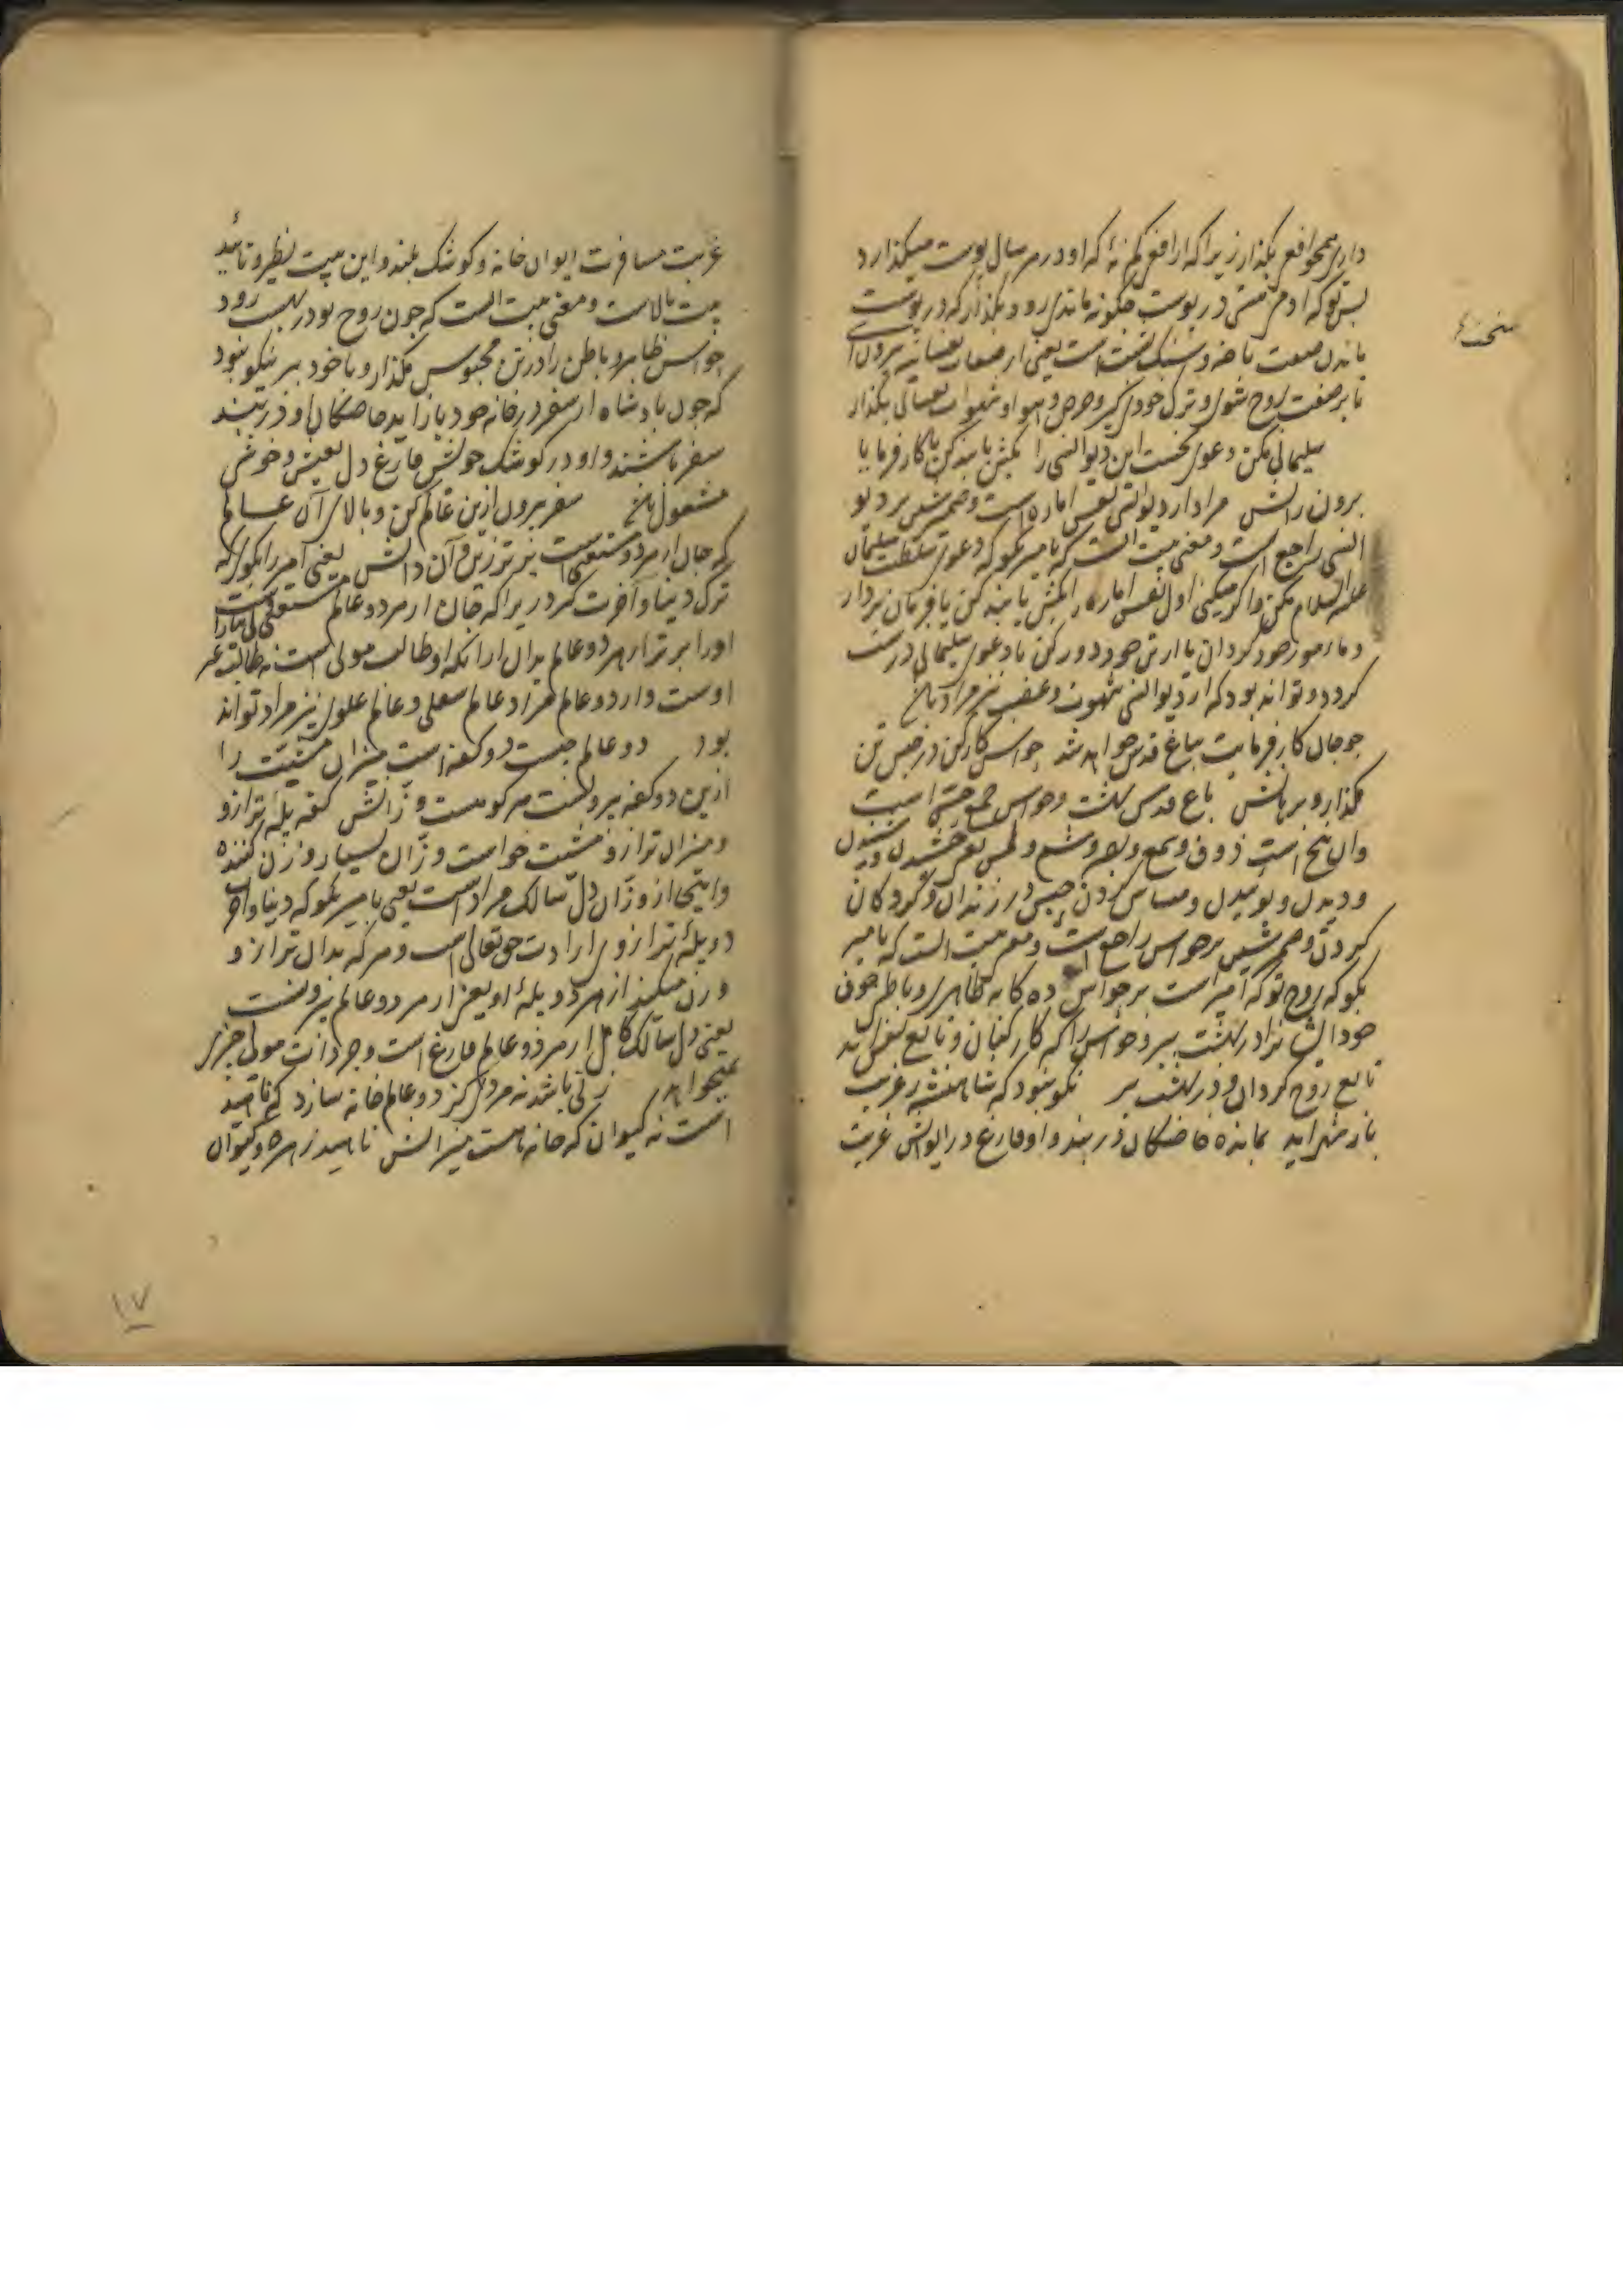 داری همچو افعی بگذار زیرا که از افعی کم نهٔ که او در هر سال پوست میگذارد
پس تو که آدمی در پوست چگونه ماندی رو و بگذار که در پوست
ماندن صفت و سنک است یعنی از صفات نفسانیه برون آی
تا بر صفت روح شوی و ترک خود گیر و حرص و هوا و شهوات نفسانی بگذار
سلیمانی مکن دعوی نخست این دیو انسی را بکش یا بند کن یا کار فرما یا
برون رانش مراد از دیو انسی نفس اماره است و ضمیر شین بر دیو
انسی راجع است و معنی بیت آنست که با میر بگو که دعوی سلطنت سلیمان
علیه السلام مکن و اگر میکنی اول نفس اماره را بکش یا بند کن یا فرمان بردار
و مامور خود گردان یا از تن خود دور کن تا دعوی سلیمانی درست
گردد و تواند بود که از دیو انسی شهوت و غضب نیز مراد باشد
چو جان کار فرمایت بباغ قدس خواهد شد حواس کار کن در حبس تن
مگذار و برهانش باغ قدس بهشت و حواس جمع حس است
و آن پنج است ذوق و سمع و بصر و شم و لمس یعنی چشیدن و شنیدن
و دیدن و بوئیدن و مساس کردن حبس در زندان
کردن و ضمیر شین بر حواس راجع است و معنی بیت آنست که با میر
بگو که روح تو که امیر است بر حواس ده گانه ظاهری و باطنی چون
خود ایشان را در بهشت ببر و حواس را که کارکنان و تابع نفس اند
تابع روح گردان و در بهشت بر نکو نبود که شاهنشه ز غربت
باز شهر آید بمانده خاصگان در بند و او فارغ در ایوانش غربت
غربت مسافرت ایوان خانه و کوشک بلند و این بیت نظیر و تائید
بیت بالاست و معنی بیت آنست که چون روح تو در بهشت رود
حواس ظاهر و باطن را در تن محبوس مگذار و با خود ببر نیکو نبود
که چون پادشاه از سفر در خانه خود باز آید خاصگان او در بند
سفر باشند و او در کوشک خویش فارغ دل بعیش و خوشی
مشغول باشد سفر بیرون ازین عالم کن و بالای آن عالم
که جان از هر دو مستغنی است برتر زین و آن دانش یعنی امیر را بگوی که
ترک دنیا و آخرت گیر زیرا که جان از هر دو عالم مستغنی است
او را برتر از هر دو عالم بدان از آنکه او طالب مولی است نه طالب غیر
اوست و از دو عالم مراد عالم سفلی و عالم علوی نیز مراد تواند
بود دو عالم چیست دو کفه است میزان مشیت را
ازین دو کفه بیرونست هر کو هست وزانش کفه پله ترازو
و میزان ترازو مشیت خواست وزان بسیار وزن کننده
و اینجا از وزان دل سالک مراد است یعنی با میر بگو که دنیا و آخرت
دو پله ترازوی ارادت حق تعالی است و هر که بدان ترازو
وزن میکند از هر دو پلهٔ او یعنی از هر دو عالم بیرونست
یعنی دل سالک کامل از هر دو عالم فارغ است و جز ذات مولی چیزی
نمیخواهد زنی باشد نه مردی کز دو عالم خانه سازد که ناهید
است نه کیوان که خانه هست میزانش ناهید زهره و کیوان
۱۷